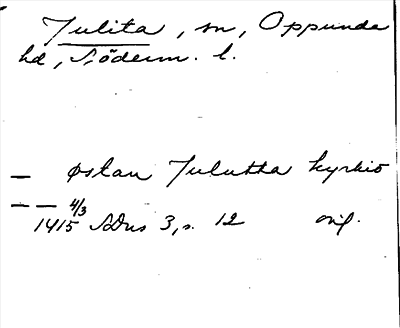 Julita, sn, Oppunda
hd, Söderm. l.
— østan Julutta kyrkio
— — 4/3
1415 SDns 3, s. 12 orig.